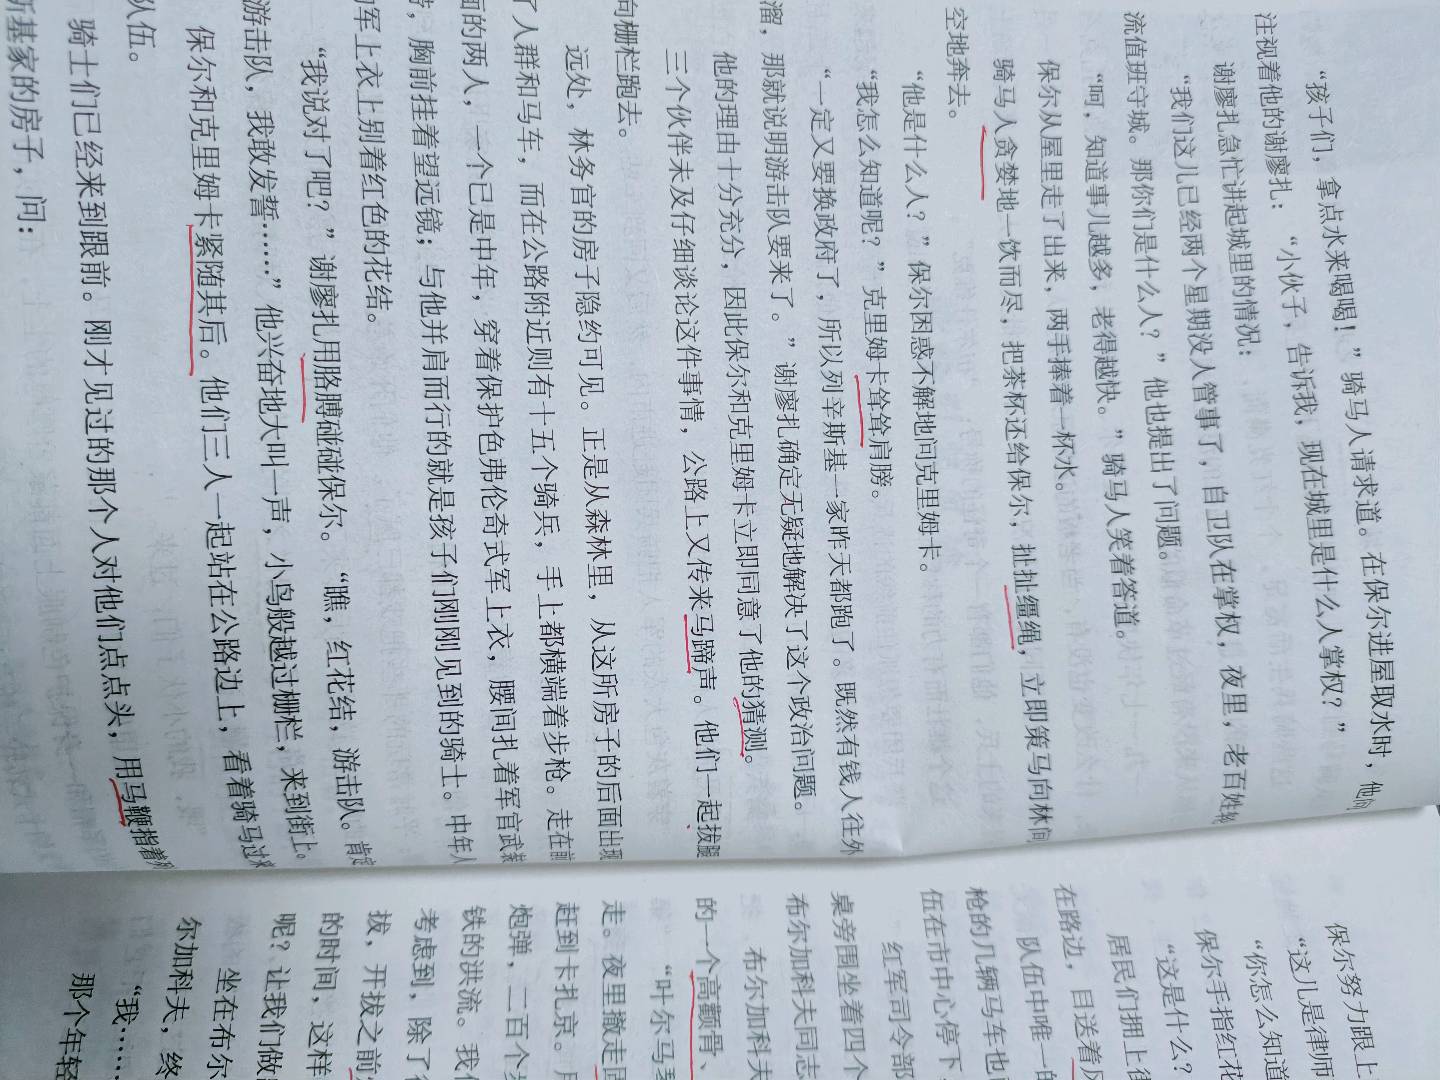 “孩子们，拿点水来喝喝！”骑马人请求道。在保尔进屋取水时，他向
注视着他的谢廖扎：“小伙子，告诉我，现在城里是什么人掌权？”
谢廖扎急忙讲起城里的情况：
“我们这儿已经两个星期没人管事了，自卫队在掌权，夜里，老百姓轮
流值班守城。那你们是什么人？”他也提出了问题。
“呵，知道事儿越多，老得越快。”骑马人笑着答道。
保尔从屋里走了出来，两手捧着一杯水。
骑马人贪婪地一饮而尽，把茶杯还给保尔，扯扯缰绳，立即策马向林间
空地奔去。
“他是什么人？”保尔困惑不解地问克里姆卡。
“我怎么知道呢？”克里姆卡耸耸肩膀。
“一定又要换政府了，所以列辛斯基一家昨天都跑了。既然有钱人往外
溜，那就说明游击队要来了。”谢廖扎确定无疑地解决了这个政治问题。
他的理由十分充分，因此保尔和克里姆卡立即同意了他的猜测。
三个伙伴未及仔细谈论这件事情，公路上又传来马蹄声。他们一起拔腿
向栅栏跑去。
远处，林务官的房子隐约可见。正是从森林里，从这所房子的后面出现
了人群和马车，而在公路附近则有十五个骑兵，手上都横端着步枪。走在前
面的两人，一个已是中年，穿着保护色弗伦奇式军上衣，腰间扎着军官武装
，胸前挂着望远镜；与他并肩而行的就是孩子们刚刚见到的骑士。中年人
军上衣上别着红色的花结。
“我说对了吧？”谢廖扎用胳膊碰碰保尔。“瞧，红花结，游击队。肯定
游击队，我敢发誓……”他兴奋地大叫一声，小鸟般越过栅栏，来到街上。
保尔和克里姆卡紧随其后。他们三人一起站在公路边上，看着骑马过来
队伍。
骑士们已经来到跟前。刚才见过的那个人对他们点点头，用马鞭指着
斯基家的房子，问：
保尔努力跟上
“这儿是律师
“你怎么知道
保尔手指红花
“这是什么？
居民们拥上街
在路边，目送着
队伍中唯一的
枪的几辆马车也
伍在市中心停下，
红军司令部
桌旁围坐着四个
布尔加科夫同志
布尔加科夫
的一个高颧骨、
“叶尔马
走。夜里撤走
赶到卡扎京。
炮弹，二百个
铁的洪流。我
考虑到，除了
拔，开拔之前
的时间，这样
呢？让我们做
坐在布尔
尔加科夫，终
“我……
那个年轻